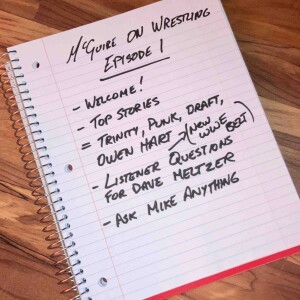 McGuire on Wrestling
Episode 1
- Welcome!
- Top Stories
= Trinity, Punk, Draft,
Owen Hart (New WWE Belt)
- Listener Questions
for Dave Meltzer
- Ask Mike Anything